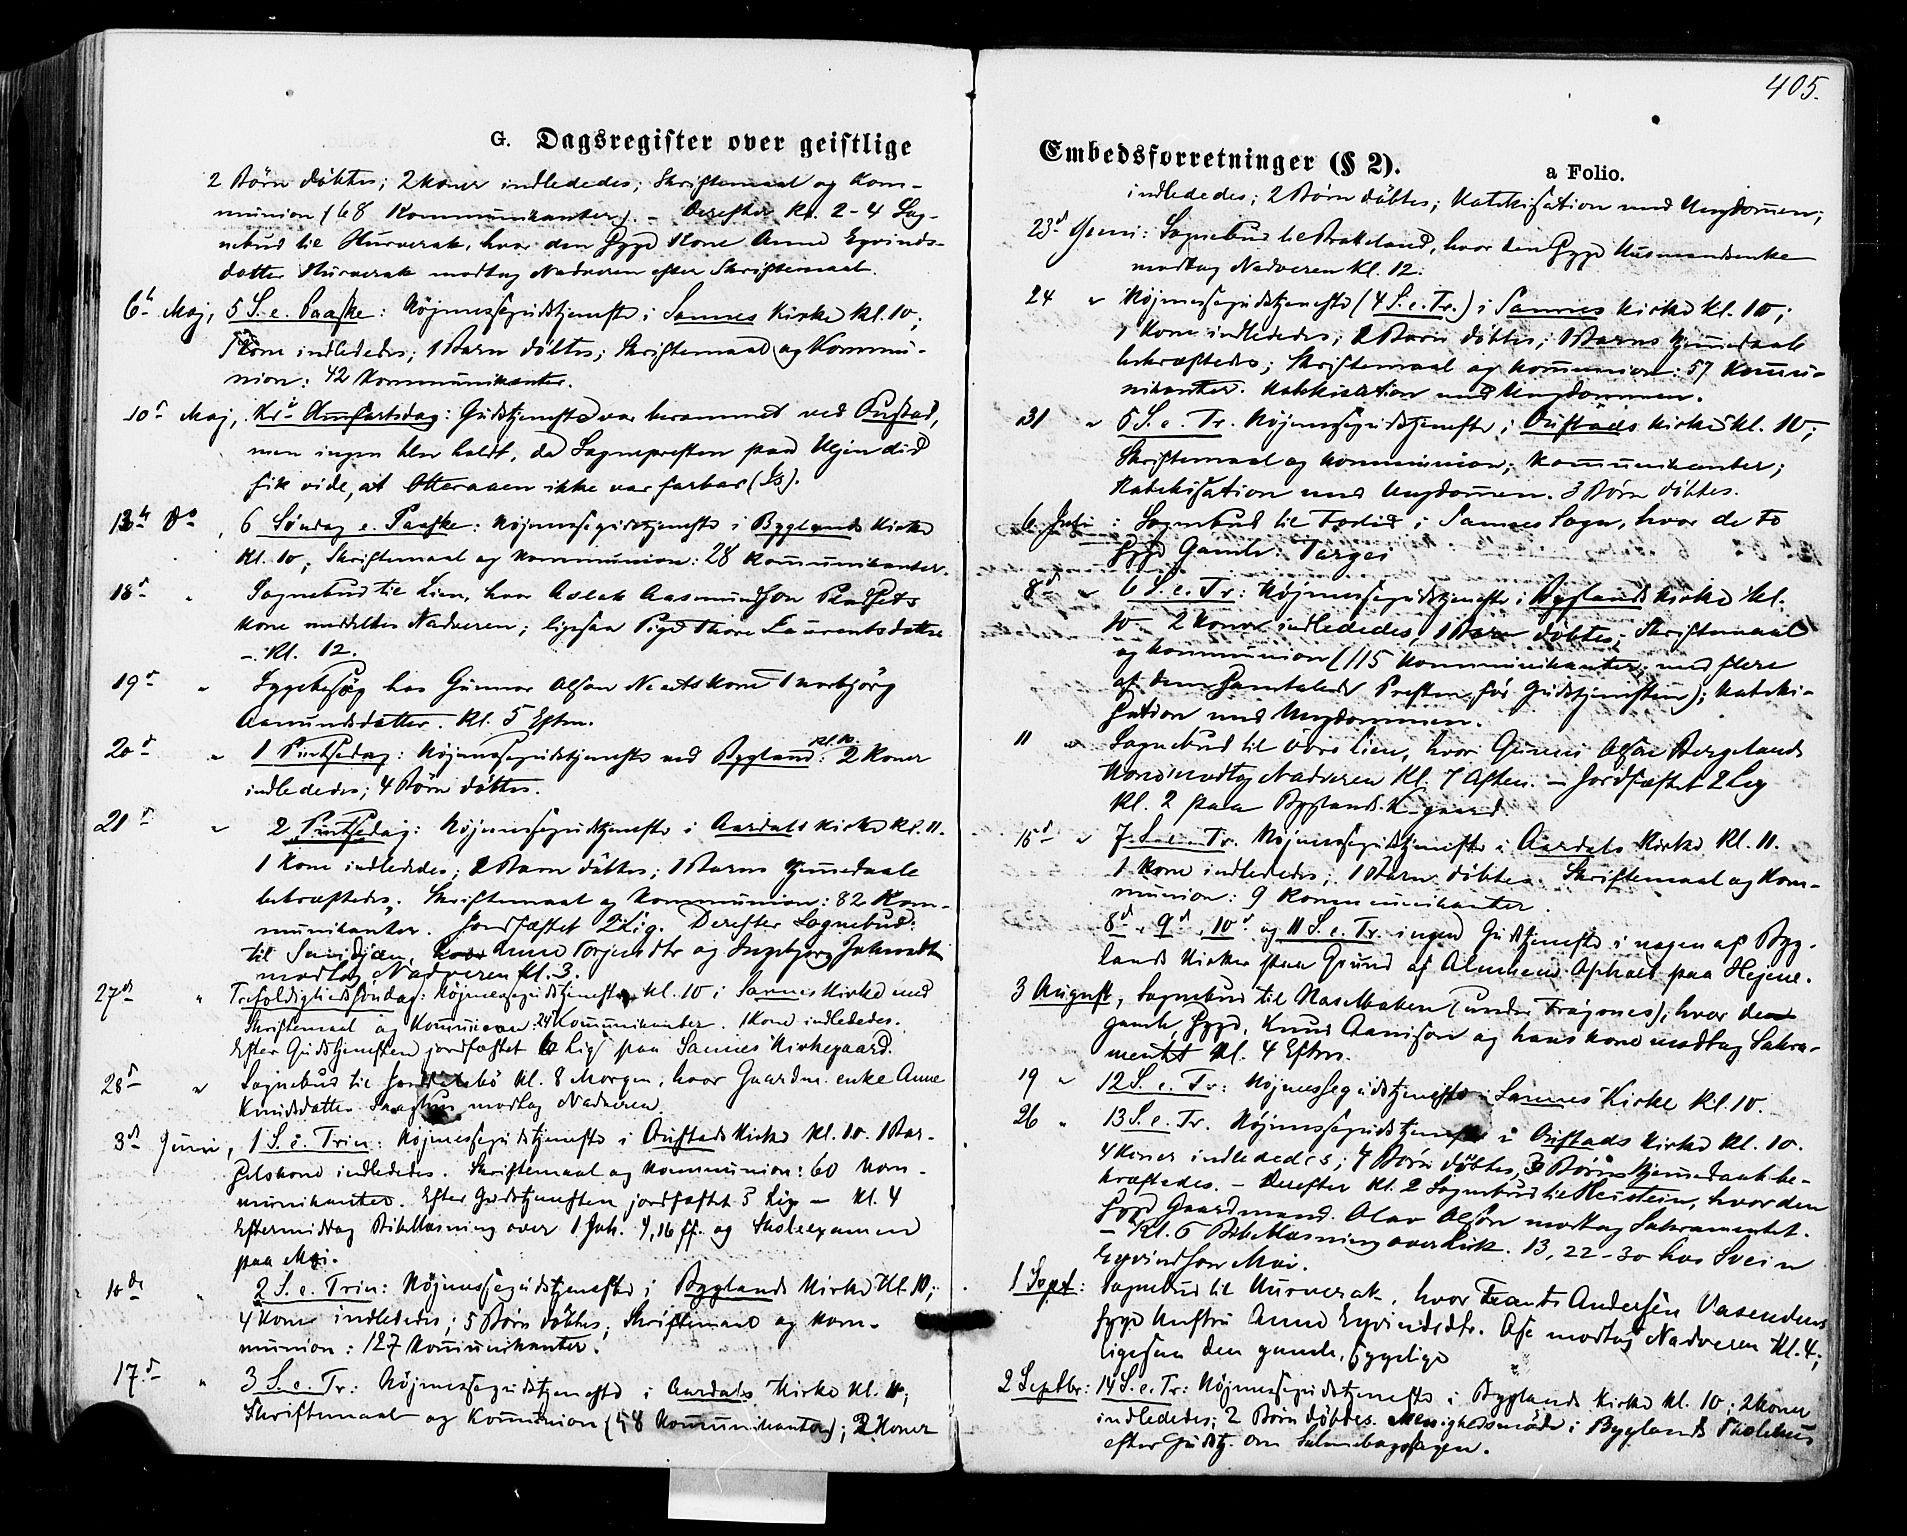 G. Dagsregister over geistlige
2 Börn döbtes; 2 Koner indlededes; Skriftemaal og Kom-
munion (68 Kommunikanter). - Derefter Kl. 2-4 Sog-
nebud til Hurverak, hvor den syge Kone Anne Eyvinds-
datter Hurverak modtog Nadveren efter Skriftemaal.
6te Maj, 5 S. e. Paaske: Höjmessegudstjeneste i Sannes Kirke Kl. 10;
Kone indlededes; 1 Barn döbtes; Skriftemaal og Kommu-
nion: 42 Kommunikanter.
10de Maj, Kri Himfartsdag: Gudstjeneste var berammet ved Austad,
men ingen blev holdt, da Sognepresten paa Vejen did
fik vide, at Otteraaen ikke var farbar (Is).
13de Do, 6 Söndag e. Paaske: Höjmessegudstjeneste i Byglands Kirke
Kl. 10, Skriftemaal og Kommunion: 28 Kommunikanter.
18de " Sognebud til Lien, hvor Aslak Aasmundson
Kone meddeltes Nadveren; ligesaa Pige Thore Laurentsdatter
- Kl. 12.
19de " Sygebesög hos Gunnar Olson Kone Thorbjörg
Aamundsdatter. Kl. 5 Eftm.
20de " 1 Pintsedag: Höjmessegudstjeneste ved Bygland Kl. 10: 2 Koner
indlededes; 4 Börn döbtes.
21de " 2 Pintsedag: Höjmessegudstjeneste i Aardals Kirke Kl. 11.
1 Kone indlededes; 2 Barn döbtes; 1 Barns Hjemmedaab
bekræftedes; Skriftemaal og Kommunion: 82 Kom-
munikanter. Jordfæstet 2 Lig. Derefter Sognebud
til hvor Anne Torjusdtr og Ingebjorg
modtog Nadveren Kl. 3.
27de " Trefoldighedssöndag: Höjmessegudstjeneste Kl. 10 i Sannes Kirke med
Skriftemaal og Kommunion: 24 Kommunikanter. 1 Kone indlededes.
Efter Gudstjenesten jordfæstet 6 Lig paa Sannes Kirkegaard.
28de " Sognebud til Kl. 8 Morgen, hvor Gaardm. enke Anne
Knudsdatter modtog Nadveren.
3de Juni, 1 S. e. Trin: Höjmessegudstjeneste i Austads Kirke Kl. 10. 1 Bar-
selskone indlededes. Skriftemaal og Kommunion: 60 Kom-
munikanter. Efter Gudstjenesten jordfæstet 3 Lig - Kl. 4
Eftermiddag Bibellæsning over 1 Joh. 4,16 ff. og Skoleexamen
paa Moi.
10de " 2 S. e. Trin: Höjmessegudstjeneste i Byglands Kirke Kl. 10;
4 Kone indlededes; 5 Börn döbtes; Skriftemaal og Kom-
munion: 127 Kommunikanter.
17de " 3 S. e. Tr: Höjmessegudstjeneste i Aardals Kirke Kl. 11;
Skriftemaal og Kommunion (58 Kommunikanter); 2 Koner
405.
Embedsforretninger (§ 2). a Folio.
indlededes; 2 Börn döbtes; Katekisation med Ungdommen;
23de Juni: Sognebud til Brakeland, hvor den syge Husmandsenke
modtog Nadveren Kl. 12.
24 " Höjmessegudstjeneste (4 S. e. Tr.) i Sannes Kirke Kl. 10;
1 Kone indlededes; 2 Barn döbtes; 1 Barns Hjemmedaab
bekræftedes; Skriftemaal og Kommunion: 57 Kommu-
nikanter. Katekisation med Ungdommen.
31 " 5 S. e. Tr. Höjmessegudstjeneste i Austads Kirke Kl. 10;
Skriftemaal og Kommunion; Kommunikanter;
Katekisation med Ungdommen. 3 Börn döbtes.
6 Juli: Sognebud til i Sannes Sogn, hvor de to
syge Gamle Targei
8de " 6 S. e. Tr: Höjmessegudstjeneste i Byglands Kirke Kl.
10 - 2 Koner indlededes, 1 Barn döbtes; Skriftemaal
og Kommunion (115 Kommunikanter; med flere
af dem samtalede Presten för Gudstjenesten); Kateki-
sation med Ungdommen.
11 " Sognebud til lien, hvor Gunni Olson Bergelands
Kone modtog Nadveren Kl. 7 Aften. - Jordfæstet 2 Lig
Kl. 2 paa Byglands K-gaard.
15de " 7 S. e. Tr. Höjmessegudstjeneste i Aardals Kirke Kl. 11.
1 Kone indlededes; 1 Barn döbtes. Skriftemaal og Kom-
munion: 9 Kommunikanter.
8de, 9de, 10de og 11 S. e. Tr. ingen Gudstjeneste i nogen af Byg-
lands Kirker paa Grund af Almuens Ophold paa Hejene.
3 August, Sognebud til Nasebakken (under Fröjsnes), hvor den
gamle syge, Knud Aanison og hans Kone modtog Sakra-
mentet Kl. 4 Eftm.
19 " 12 S. e. Tr: Höjmessegudstjeneste i Sannes Kirke Kl. 10.
26 " 13 S. e. Tr. Höjmessegudstjeneste i Austads Kirke Kl. 10.
4 Koner indlededes; 4 Börn döbtes, 3 Börns Hjemmedaab be-
kræftedes. - Derefter Kl. 2 Sognebud til Neustein, hvor den
syge Gaardmand Olav Olson modtog Sakramentet.
- Kl. 6 Bibellæsning over Luk. 13, 22-30 hos Svein
Eyvindson Moi.
1 Sept: Sognebud til Hurverak, hvor Andersen Vasendens
syge Hustru Anne Eyvindsdtr. Ose modtog Nadveren Kl. 4;
ligesaa den gamle, sygelige
2 Septbr: 14 S. e. Tr: Höjmessegudstjeneste i Byglands Kirke Kl. 10; 2 Koner
indlededes; 2 Börn döbtes. Menighedsmöde i Byglands Skolehus
efter Gudstj. om Salmebogssagen.